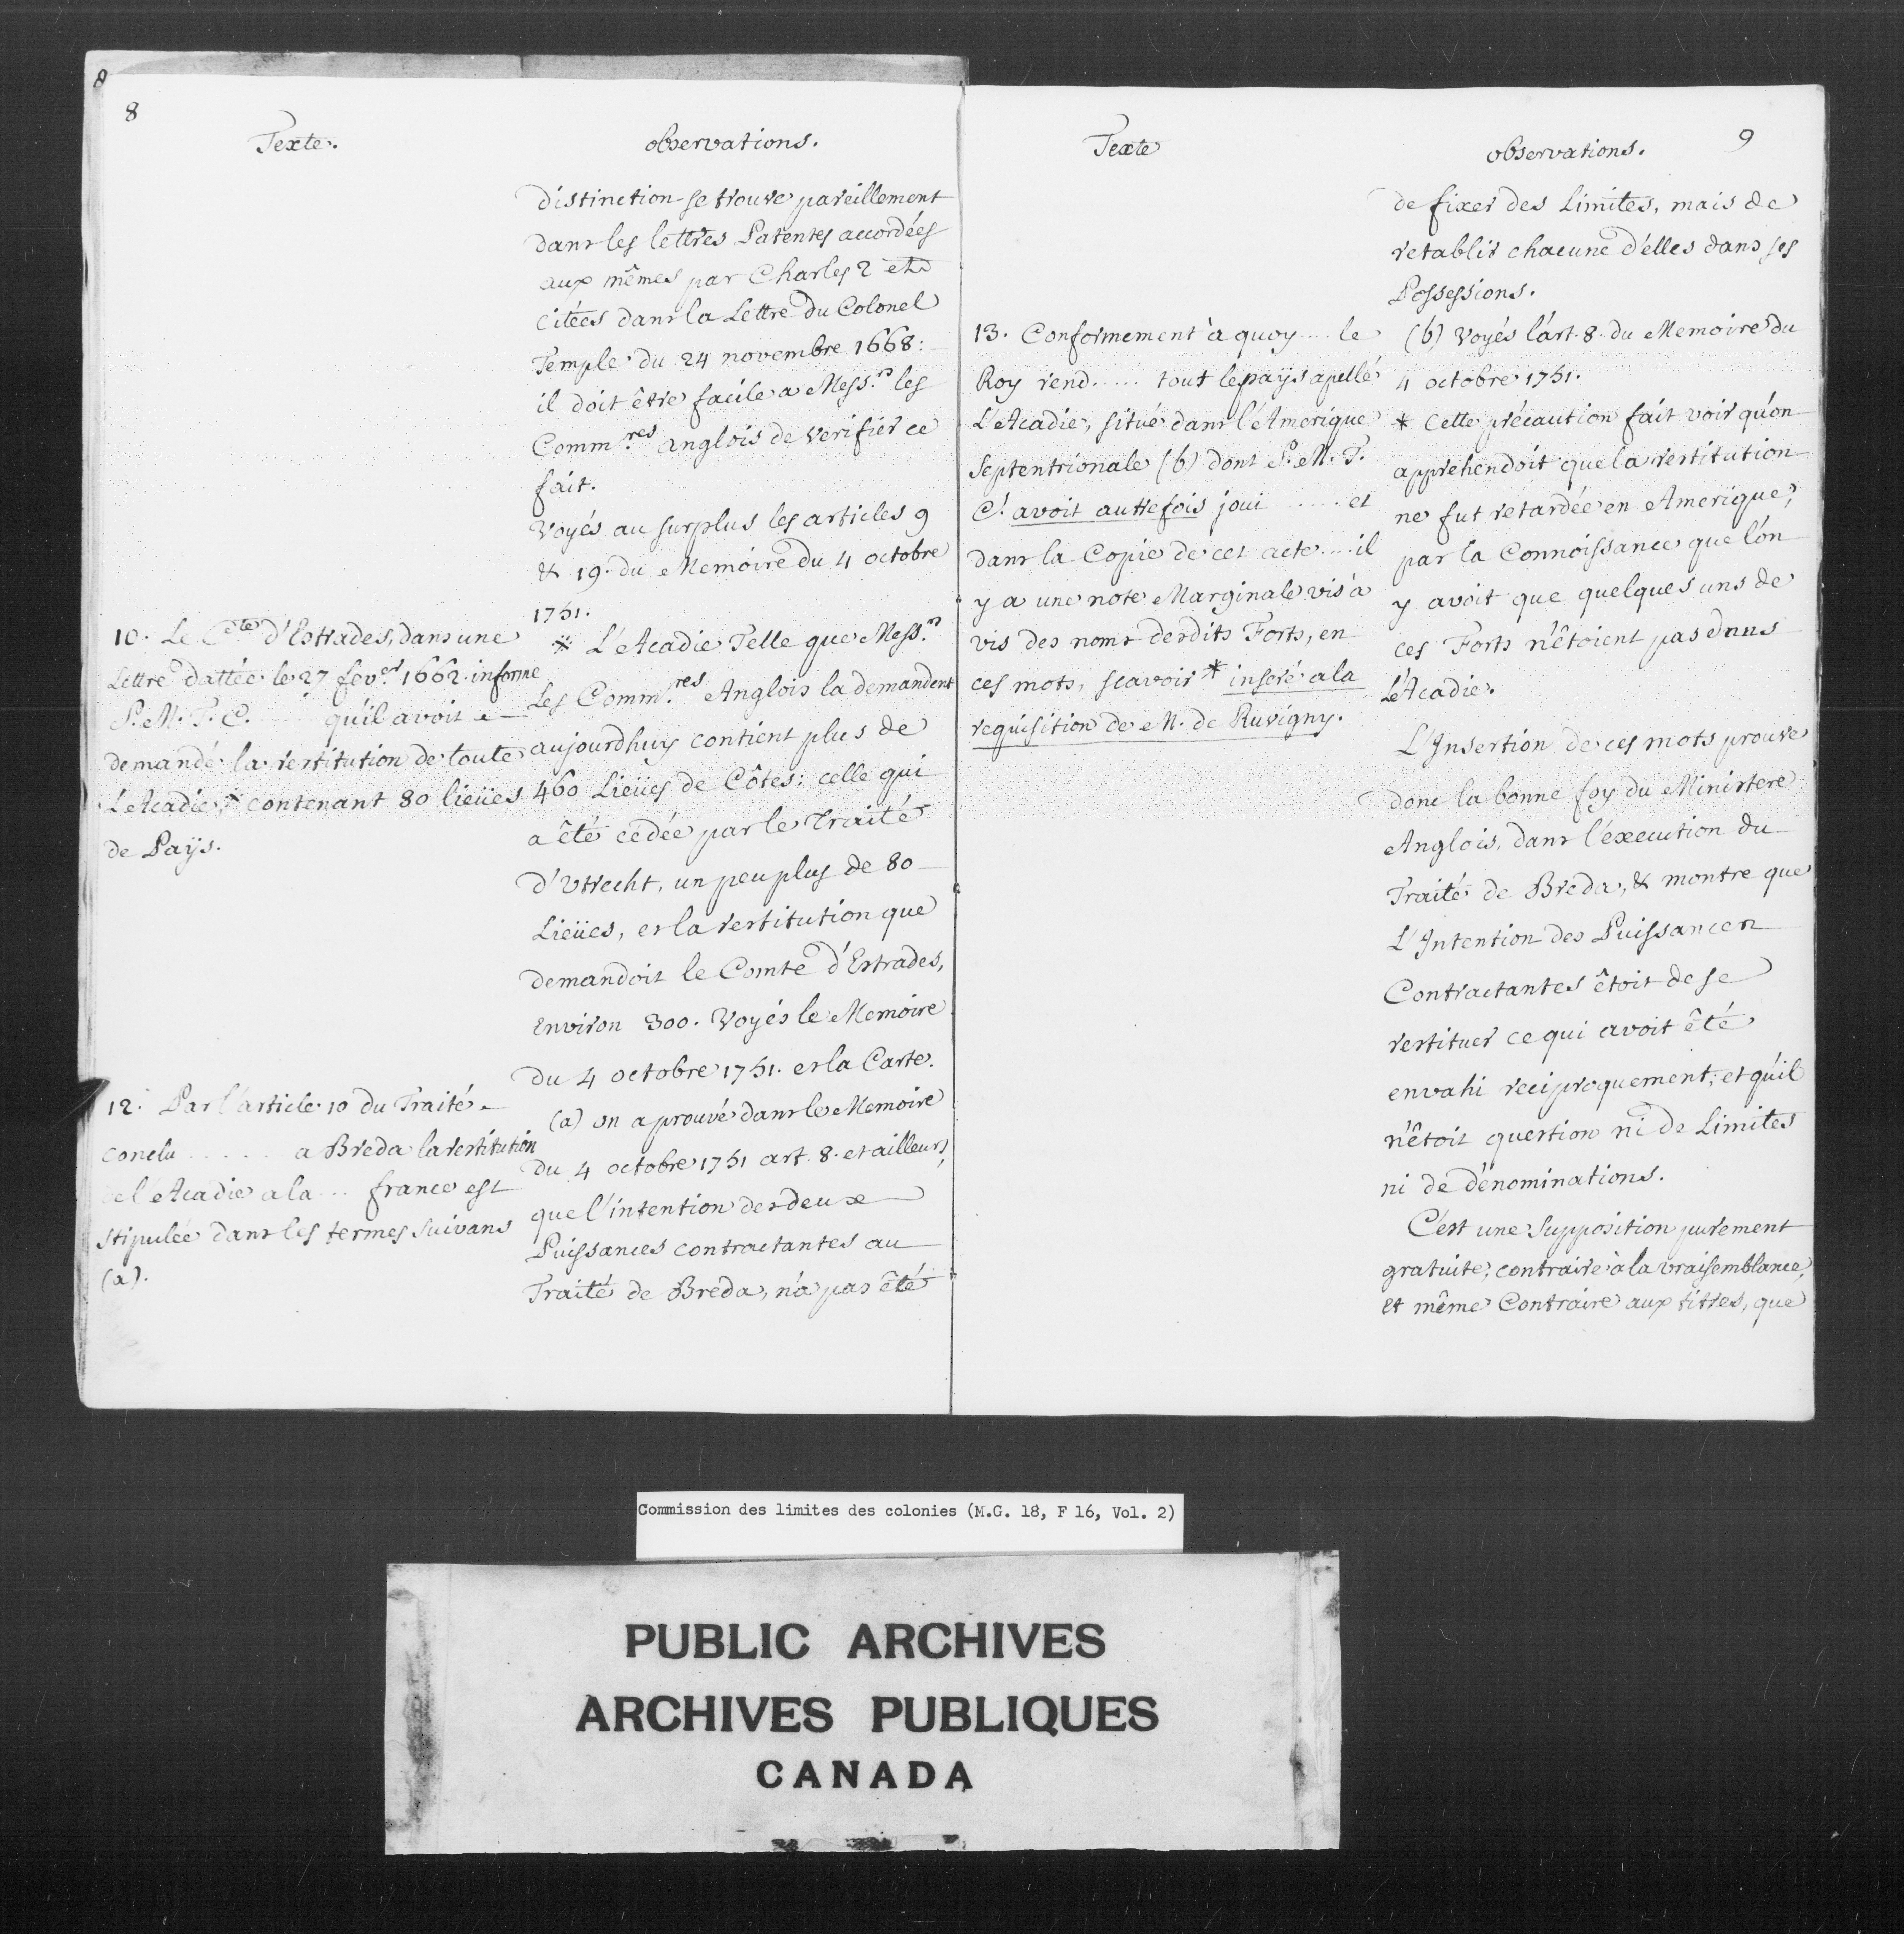 8
8
Texte.
10. Le C.te d'Estrades, dans une
Lettre dattée le 27 fev.er 1662. informe
S. M. T. C. ...... qu'il avoit
demandé la restitution de toute
L'Acadie,* contenant 80 lieües
de Païs.
12. Par l'article 10 du Traité
conclu ..... a Breda la restitution
de l'Acadie a la ... france est
stipulée dans les termes suivans
(a).
observations.
distinction se trouve pareillement
dans les lettres Patentes accordées
aux mêmes par Charles 2 et
citées dans la Lettre du Colonel
Temple du 24 novembre 1668:
il doit être facile a Mess.rs les
Comm.res anglois de verifier ce
fait.
Voyés au surplus les articles 9
& 19. du Memoire du 4 octobre
1751.
* L'Acadie Telle que Mess.rs
Les Comm.res Anglois la demandent
aujourdhuy contient plus de
460 Lieües de Côtes: celle qui
a êté cédée par le Traité
d'Utrecht, un peu plus de 80
Lieües, et la restitution que
demandoit le Comte d'Estrades,
environ 300. Voyés le Memoire
du 4 octobre 1751. et la Carte.
(a) on a prouvé dans le Memoire
du 4 octobre 1751 art. 8. et ailleurs,
que l'intention des deux
Puissances contractantes au
Traité de Breda, n'a pas êté
Texte
13. Conformement à quoy .... le
Roy rend ..... tout le païs apellé
L'Acadie, situé dans l'Amerique
Septentrionale (b) dont S. M. T.
C. avoit autrefois joui ...... et
dans la Copie de cet acte .... il
y a une note Marginale vis à
vis des noms desdits Forts, en
ces mots, scavoir * inseré a la
requisition de M. de Ruvigny.
9
observations.
de fixer des Limites, mais de
retablir chacune d'elles dans ses
Possessions.
(b) Voyés l'art. 8. du Memoire du
4 octobre 1751.
* Cette précaution fait voir qu'on
apprehendoit que la restitution
ne fut retardée en Amerique,
par la Connoissance que l'on
y avoit que quelques uns de
ces Forts n'êtoient pas dans
L'Acadie.
L'Insertion de ces mots prouve
donc la bonne foy du Ministere
Anglois, dans l'éxecution du
Traité de Breda, & montre que
L'Intention des Puissances
Contractantes êtoit de se
restituer ce qui avoit êté
envahi reciproquement; et qu'il
n'êtoit question ni de Limites
ni de dénominations.
C'est une Supposition purement
gratuite, contraire à la vraisemblance,
et même Contraire aux titres, que
Commission des limites des colonies (M.G. 18, F 16, Vol. 2)
PUBLIC ARCHIVES
ARCHIVES PUBLIQUES
CANADA